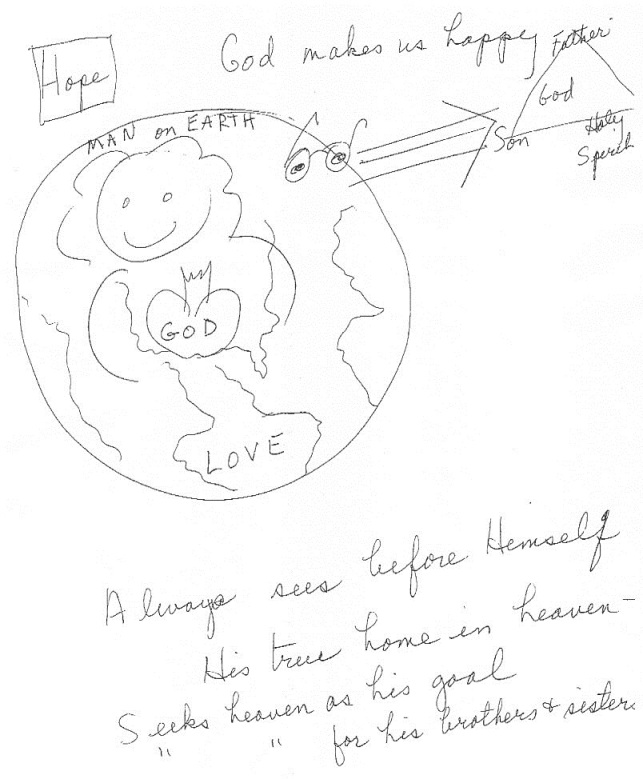 Hope
God makes us happy
Father
God
Son
Holy
Spirit
MAN on EARTH
my
GOD
LOVE
Always sees before Himself
His true home in heaven–
Seeks heaven as his goal
" " for his brothers & sister.